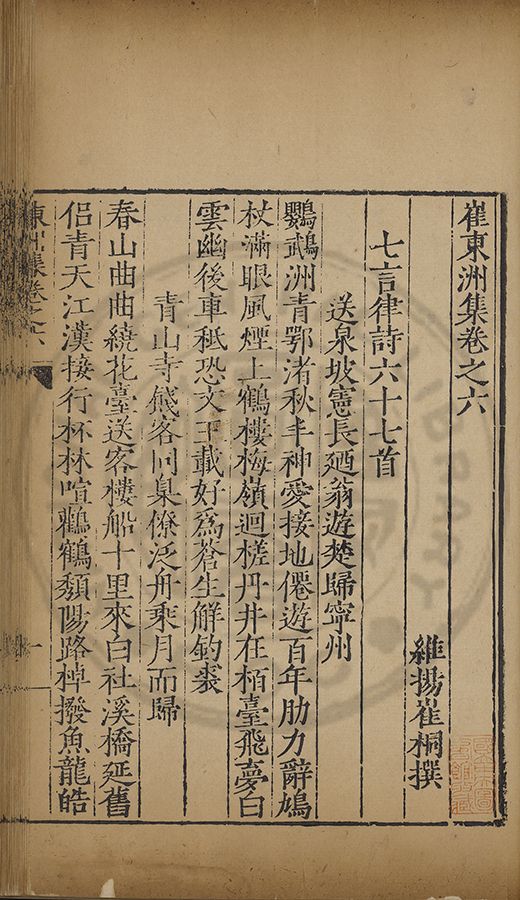 崔東洲集卷之六
維揚崔桐撰
七言律詩六十七首
送泉坡憲長廼翁遊楚歸寧州
鸚鵡洲青鄂渚秋半神愛接地僊遊百年肋力辭鳩
杖滿眼風煙上鶴樓梅嶺迴槎丹井在栢臺飛夢白
雲幽後車秪恐文王載好爲蒼生觧釣裘
青山寺餞客同臬僚泛舟乘月而歸
春山曲曲繞花臺送客樓船十里來白社溪橋延舊
侣青天江漢接行杯林喧鸛鶴頽陽路棹撥魚龍皓
東洲集卷之六
一